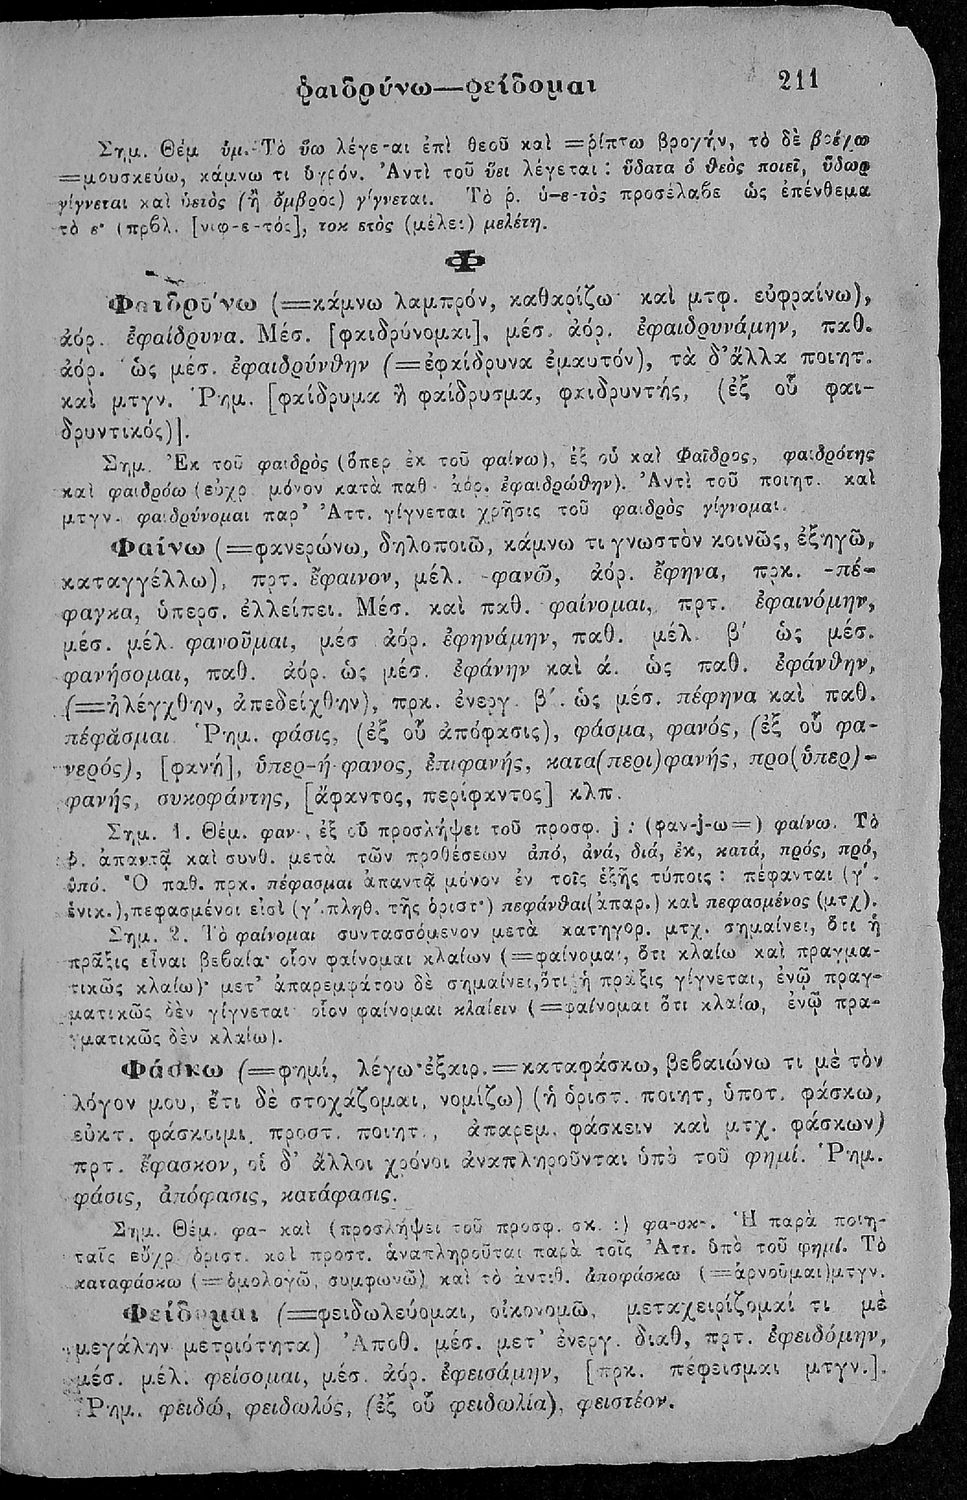 φαιδρύνω—φείδομαι 211
Σημ. Θέμ ὑμ.- Τὸ ὕω λέγεται ἐπὶ θεοῦ καὶ =ῥίπτω βροχήν, τὸ δὲ βρέχω
=μουσκεύω, κάμνω τι ὑγρόν. Ἀντὶ τοῦ ὕει λέγεται : ὕδατα ὁ θεὸς ποιεῖ, ὕδωρ
γίγνεται καὶ ὑετὸς (ἢ ὄμβρος) γίγνεται. Τὸ ῥ. ὑ-ε-τὸς προσέλαβε ὡς ἐπένθεμα
τὸ ε· (πρβλ. [νιφ-ε-τός], τοκ ετὸς (μέλει) μελέτη.
Φ
Φαιδρύνω (=κάμνω λαμπρόν, καθαρίζω· καὶ μτφ. εὐφραίνω),
ἀόρ. ἐφαίδρυνα. Μέσ. [φαιδρύνομαι], μέσ. ἀόρ. ἐφαιδρυνάμην, παθ.
ἀόρ. ὡς μέσ. ἐφαιδρύνθην (=ἐφαίδρυνα ἐμαυτόν), τὰ δ᾽ἄλλα ποιητ.
καὶ μτγν. Ῥημ. [φαίδρυμα ἢ φαίδρυσμα, φαιδρυντής, (ἐξ οὗ φαι-
δρυντικός)].
Σημ. Ἐκ τοῦ φαιδρὸς (ὅπερ ἐκ τοῦ φαίνω), ἐξ οὗ καὶ Φαῖδρος, φαιδρότης
καὶ φαιδρόω (εὐχρ μόνον κατὰ παθ· ἀόρ. ἐφαιδρώθην). Ἀντὶ τοῦ ποιητ. καὶ
μτγν. φαιδρύνομαι παρ᾽ Ἀττ. γίγνεται χρῆσις τοῦ φαιδρὸς γίγνομαι.
Φαίνω (=φανερώνω, δηλοποιῶ, κάμνω τι γνωστὸν κοινῶς, ἐξηγῶ,
καταγγέλλω), πρτ. ἔφαινον, μέλ. -φανῶ, ἀόρ. ἔφηνα, πρκ. -πέ-
φαγκα, ὑπερσ. ἐλλείπει. Μέσ. καὶ παθ. φαίνομαι, πρτ. ἐφαινόμην,
μέσ. μέλ. φανοῦμαι, μέσ ἀόρ. ἐφηνάμην, παθ. μέλ. β΄ ὡς μέσ.
φανήσομαι, παθ. ἀόρ. ὡς μέσ. ἐφάνην καὶ ά. ὡς παθ. ἐφάνθην,
(=ἠλέγχθην, ἀπεδείχθην), πρκ. ἐνεργ. β΄. ὡς μέσ. πέφηνα καὶ παθ.
πέφασμαι Ῥημ. φάσις, (ἐξ οὗ ἀπόφασις), φάσμα, φανός, (ἐξ οὗ φα-
νερός), [φανή], ὑπερ-ή-φανος, ἐπιφανής, κατα(περι)φανής, προ(ὑπερ)-
φανής, συκοφάντης, [ἄφαντος, περίφαντος] κλπ.
Σημ. 1. Θέμ. φαν-, ἐξ οὗ προσλήψει τοῦ προσφ. j : (φαν-j-ω=) φαίνω. Τὸ
ῥ. ἀπαντᾷ καὶ συνθ. μετὰ τῶν προθέσεων ἀπό, ἀνά, διά, ἐκ, κατά, πρός, πρό,
ὑπό. Ὁ παθ. πρκ. πέφασμαι ἀπαντᾷ μόνον ἐν τοῖς ἑξῆς τύποις : πέφανται (γ΄.
ἑνικ.),πεφασμένοι εἰσὶ (γ΄.πληθ. τῆς ὁριστ·) πεφάνθαι(ἀπαρ.) καὶ πεφασμένος (μτχ).
Σημ. 2. Τὸ φαίνομαι συντασσόμενον μετὰ κατηγορ. μτχ. σημαίνει, ὅτι ἡ
πρᾶξις εἶναι βεβαία· οἷον φαίνομαι κλαίων (=φαίνομαι, ὅτι κλαίω καὶ πραγμα-
τικῶς κλαίω)· μετ᾽ ἀπαρεμφάτου δὲ σημαίνει,ὅτι ἡ πρᾶξις γίγνεται, ἐνῷ πραγ-
ματικῶς δὲν γίγνεται· οἷον φαίνομαι κλαίειν (=φαίνομαι ὅτι κλαίω, ἐνῷ πρα-
γματικῶς δὲν κλαίω).
Φάσκω (=φημί, λέγω·ἐξαιρ.=καταφάσκω, βεβαιώνω τι μὲ τὸν
λόγον μου, ἔτι δὲ στοχάζομαι, νομίζω) (ἡ ὁριστ. ποιητ, ὑποτ. φάσκω,
εὐκτ. φάσκοιμι, προστ. ποιητ., ἀπαρεμ. φάσκειν καὶ μτχ. φάσκων)
πρτ. ἔφασκον, οἱ δ᾽ ἄλλοι χρόνοι ἀναπληροῦνται ὑπὸ τοῦ φημί. Ῥημ.
φάσις, ἀπόφασις, κατάφασις.
Σημ. Θέμ. φα- καὶ (προσλήψει τοῦ προσφ. σκ. :) φα-σκ-. Ἡ παρὰ ποιη-
ταῖς εὔχρ. ὁριστ. καὶ προστ. ἀναπληροῦται παρὰ τοῖς Ἀττ. ὑπὸ τοῦ φημί. Τὸ
καταφάσκω (=ὁμολογῶ, συμφωνῶ) καὶ τὸ ἀντιθ. ἀποφάσκω (=ἀρνοῦμαι)μτγν.
Φείδομαι (=φειδωλεύομαι, οἰκονομῶ, μεταχειρίζομαί τι μὲ
μεγάλην μετριότητα) Ἀποθ. μέσ. μετ᾽ ἐνεργ. διαθ, πρτ. ἐφειδόμην,
μέσ. μέλ. φείσομαι, μέσ. ἀόρ. ἐφεισάμην, [πρκ. πέφεισμαι μτγν.].
Ῥημ. φειδώ, φειδωλός, (ἐξ οὗ φειδωλία), φειστέον.